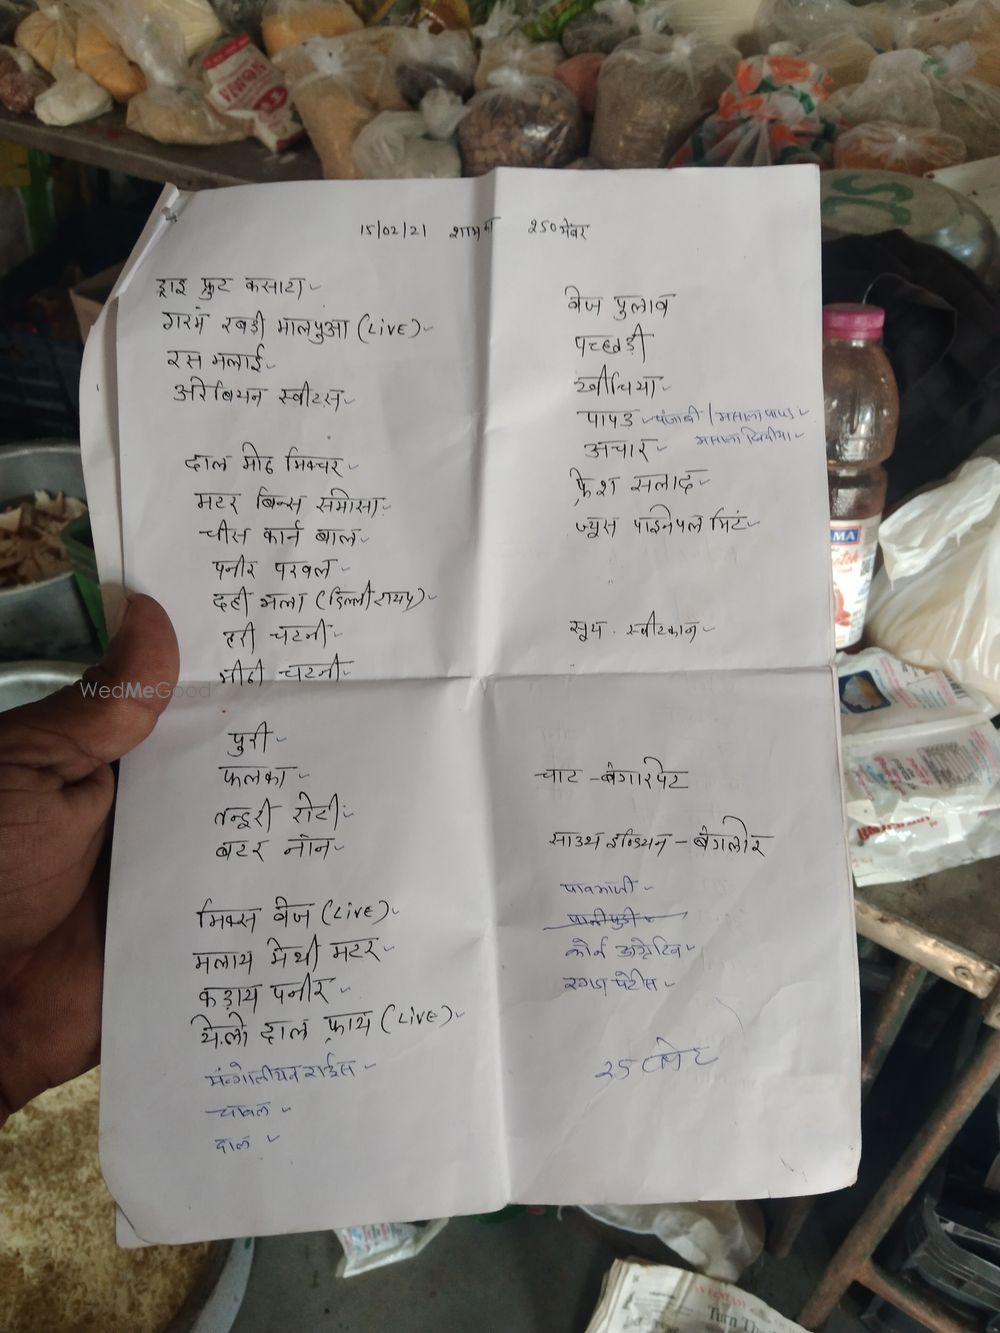 15/02/21 शाम का 250 मेंबर
ड्राइ फ्रुट कसाटा
गरमं रबड़ी मालपुआ (Live)
रस मलाई
अरेबियन स्वीटस्
दाल मोठ मिक्चर
मटर बिन्स समोसा
चीस कार्न बाल
पनीर परवल
दही भला (दिल्ली टायप)
हरी चटनी
मीठी चटनी
पुरी
फलका
तन्दूरी रोटी
बटर नॉन
मिक्स वेज (Live)
मलाय मेथी मटर
कड़ाय पनीर
येलो दाल फ्राय (Live)
मंन्गोलीयन राईस
चावल
दाल
वेज पुलाव
पच्छड़ी
खीचिया
पापड पंजाबी / मसाला पापड
मसाला खिचीया
अचार
फ्रेश सलाद
ज्यूस पाईनेपल मिंट
सूप. स्वीटकान
चाट - बंगारपेट
साउथ इण्डियन - बेंगलोर
पावभाजी
पानीपुडी
कोर्न
रगडा पेटीस
25 प्लेट
WedMeGood
NAMA
Turn Th